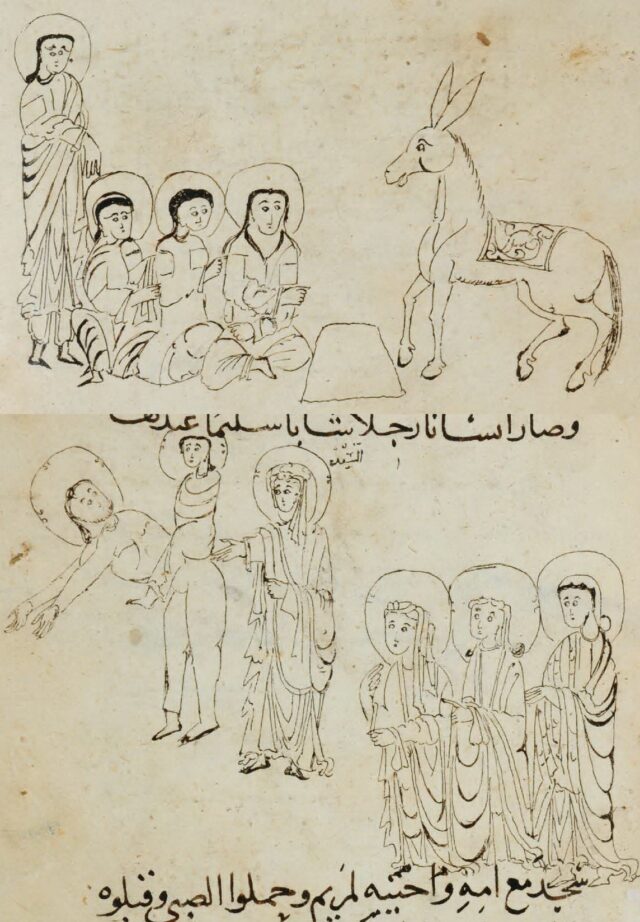 وصار انسانا رجلا شابا سليما
السيّدة
سجد مع امهِ واختيهِ لمريم وحملوا الصبي وقبلوه